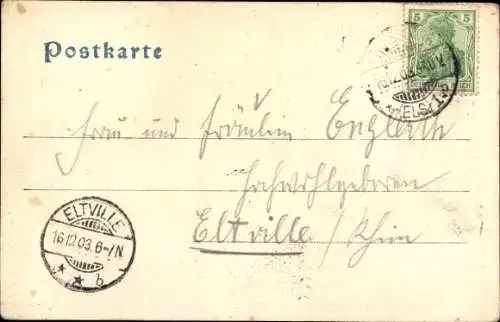 Postkarte
5
16.12.03.
(ELS.)
Frau und Fräulein Englerth
Hochwohlgeboren
Eltville / Rhein
ELTVILLE
16.12.03. 6-7N.
* * b